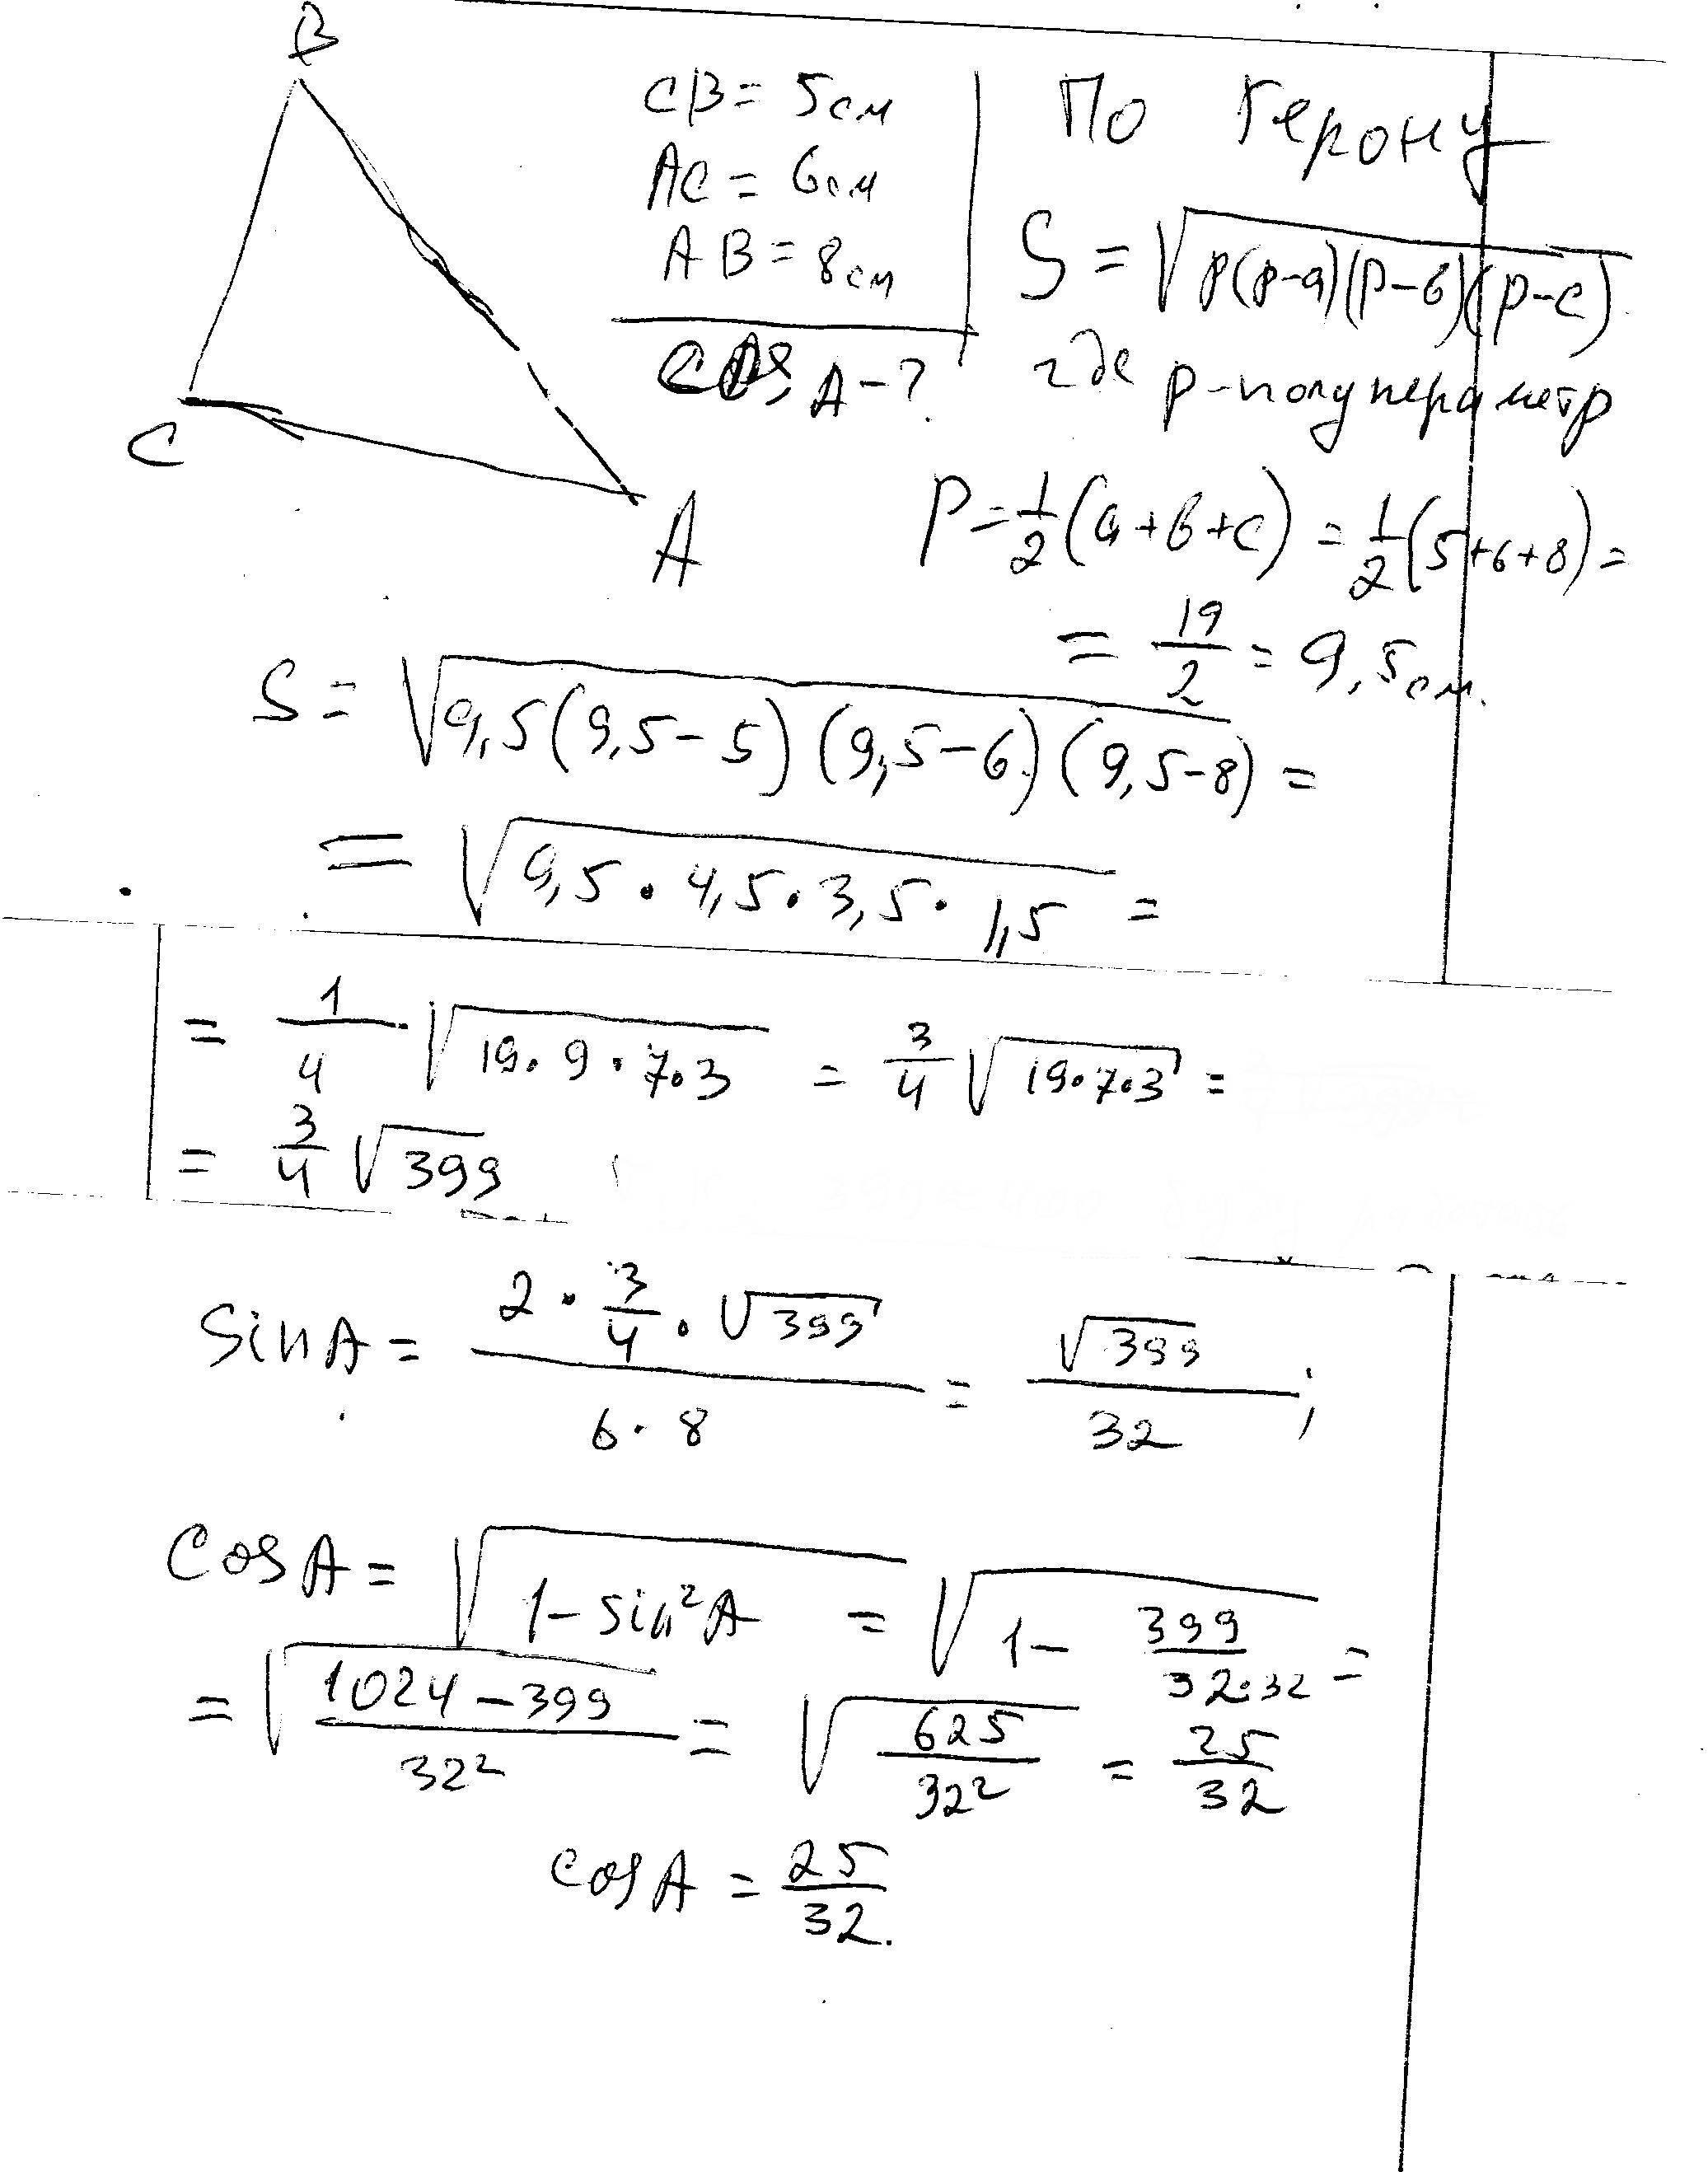 B
CB = 5см
AC = 6см
AB = 8см
cos A - ?
C
A
По Герону
S = √(p(p-a)(p-b)(p-c))
где p - полупериметр
P = 1/2 (a+b+c) = 1/2 (5+6+8) =
= 19/2 = 9,5см.
S = √(9,5(9,5-5)(9,5-6)(9,5-8)) =
= √(9,5 · 4,5 · 3,5 · 1,5) =
= 1/4 · √(19·9·7·3) = 3/4 √(19·7·3) =
= 3/4 √399
Sin A = (2 · 3/4 · √399)/(6·8) = √399/32 ;
Cos A = √(1 - sin²A) = √(1 - 399/(32·32)) =
= √((1024 - 399)/32²) = √(625/32²) = 25/32
cos A = 25/32.